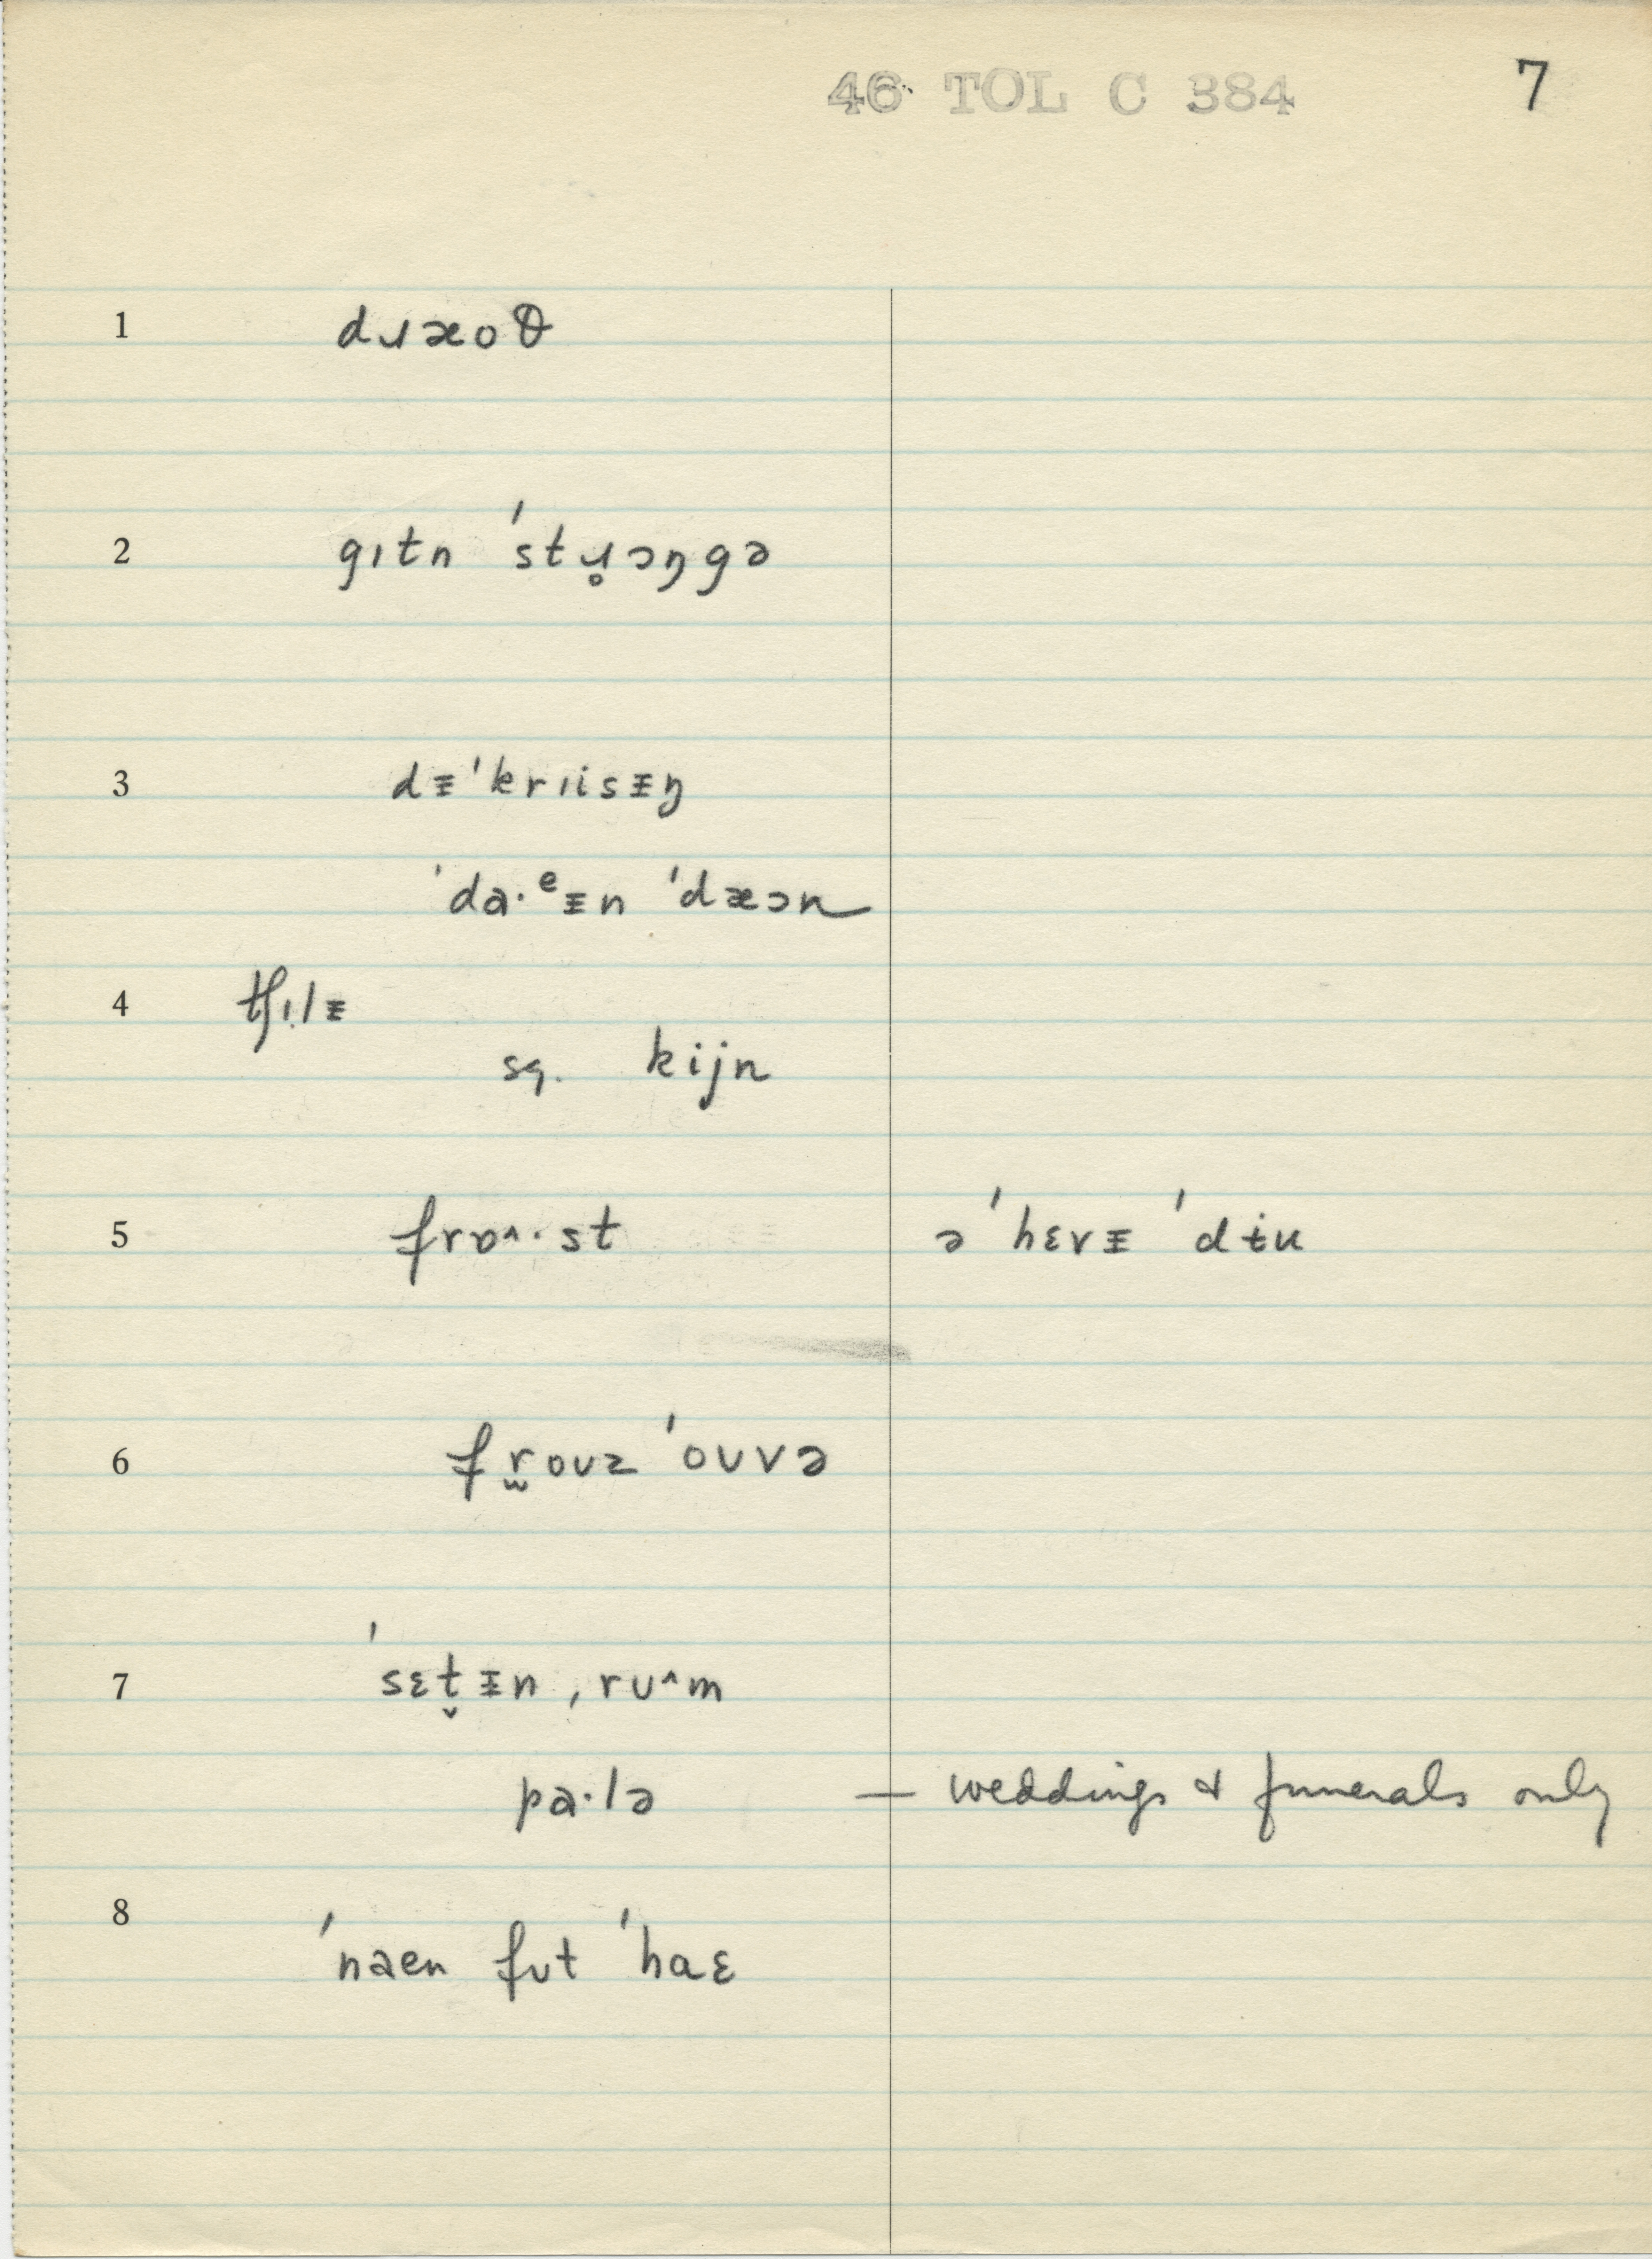 46 TOL C 384 7
1 dɹæoθ
2 gɪtn ˈstɹ̥ɔŋgə
3 dᵻˈkrɪisᵻŋ
ˈda·ᵉᵻn ˈdæɔn
4 tʃɪlᵻ
sq. kijn
5 frɒ^·st ə ˈhɛvᵻ ˈdɨu
6 fr̫oʊz ˈoʊvə
7 ˈsɛt̬ᵻn ˌrʊ^m
pa·lə — weddings & funerals only
8 ˈnaen fʊt ˈhaɛ